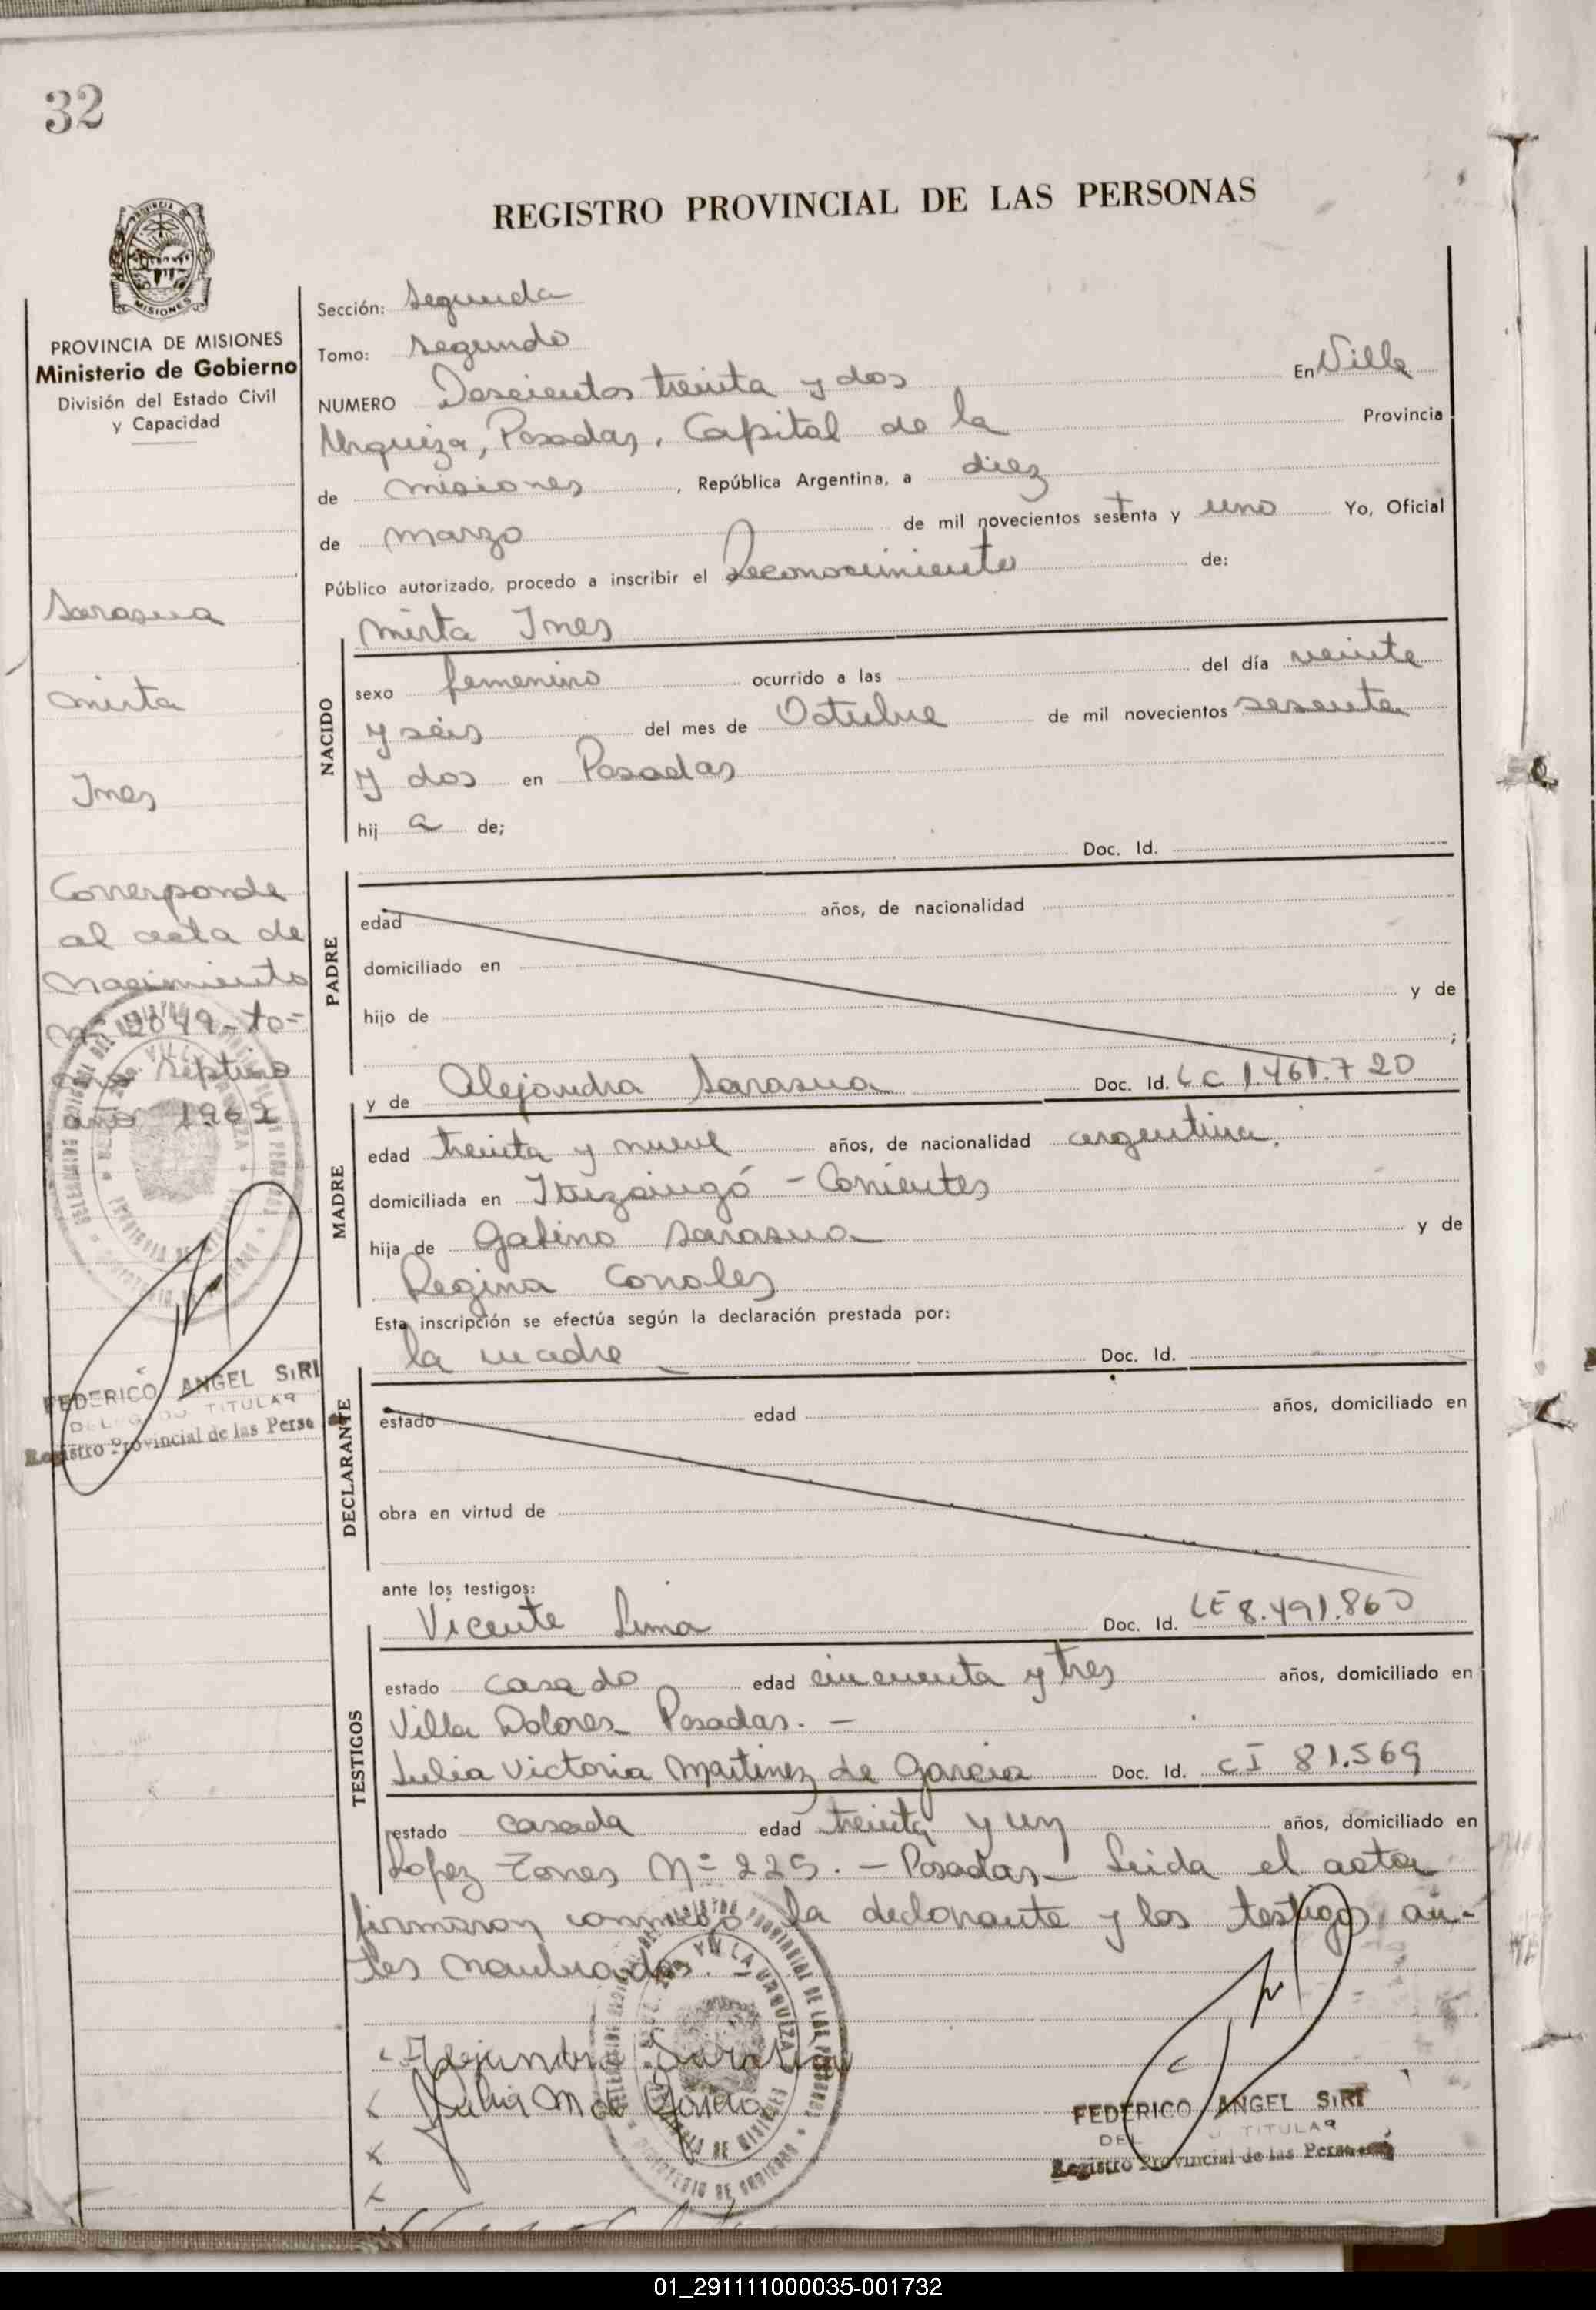 32
REGISTRO PROVINCIAL DE LAS PERSONAS
PROVINCIA DE
MISIONES
PROVINCIA DE MISIONES
Ministerio de Gobierno
División del Estado Civil
y Capacidad
Sarasua
Mirta
Ines
Corresponde
al acta de
Nacimiento
Nº 2049 - to-
mo Septimo
año 1962
FEDERICO ANGEL SIRI
TITULAR
Registro Provincial de las Perso
Sección: Segunda
Tomo: Segundo
NUMERO Doscientos treinta y dos En Villa
Urquiza, Posadas, Capital de la Provincia
de Misiones, República Argentina, a diez
de marzo de mil novecientos sesenta y uno Yo, Oficial
Público autorizado, procedo a inscribir el Reconocimiento de:
Mirta Ines
NACIDO
sexo femenino ocurrido a las del día veinte
y séis del mes de Octubre de mil novecientos sesenta
y dos en Posadas
hij a de;
Doc. Id.
PADRE
edad años, de nacionalidad
domiciliado en
hijo de y de
;
y de Alejandra Sarasua Doc. Id. LC 1.461.720
MADRE
edad treinta y nueve años, de nacionalidad argentina.
domiciliada en Ituzaingó - Corrientes
hija de Gabino Sarasua y de
Regina
Esta inscripción se efectúa según la declaración prestada por:
la madre Doc. Id.
DECLARANTE
estado edad años, domiciliado en
obra en virtud de
ante los testigos:
Vicente Lima Doc. Id. LE 8.491.860
TESTIGOS
estado casado edad cincuenta y tres años, domiciliado en
Villa Dolores Posadas. -
Julia Victoria Martinez de Garcia Doc. Id. CI 81.569
estado casada edad treinta y un años, domiciliado en
Lopez Torres Nº 225. - Posadas - Leida el acta
firmaron conmigo la declarante y los testigos an-
tes nombrados. -
Alejandra Sarasua
Julia M de Garcia
FEDERICO ANGEL SIRI
TITULAR
Registro Provincial de las Perso
01_291111000035-001732